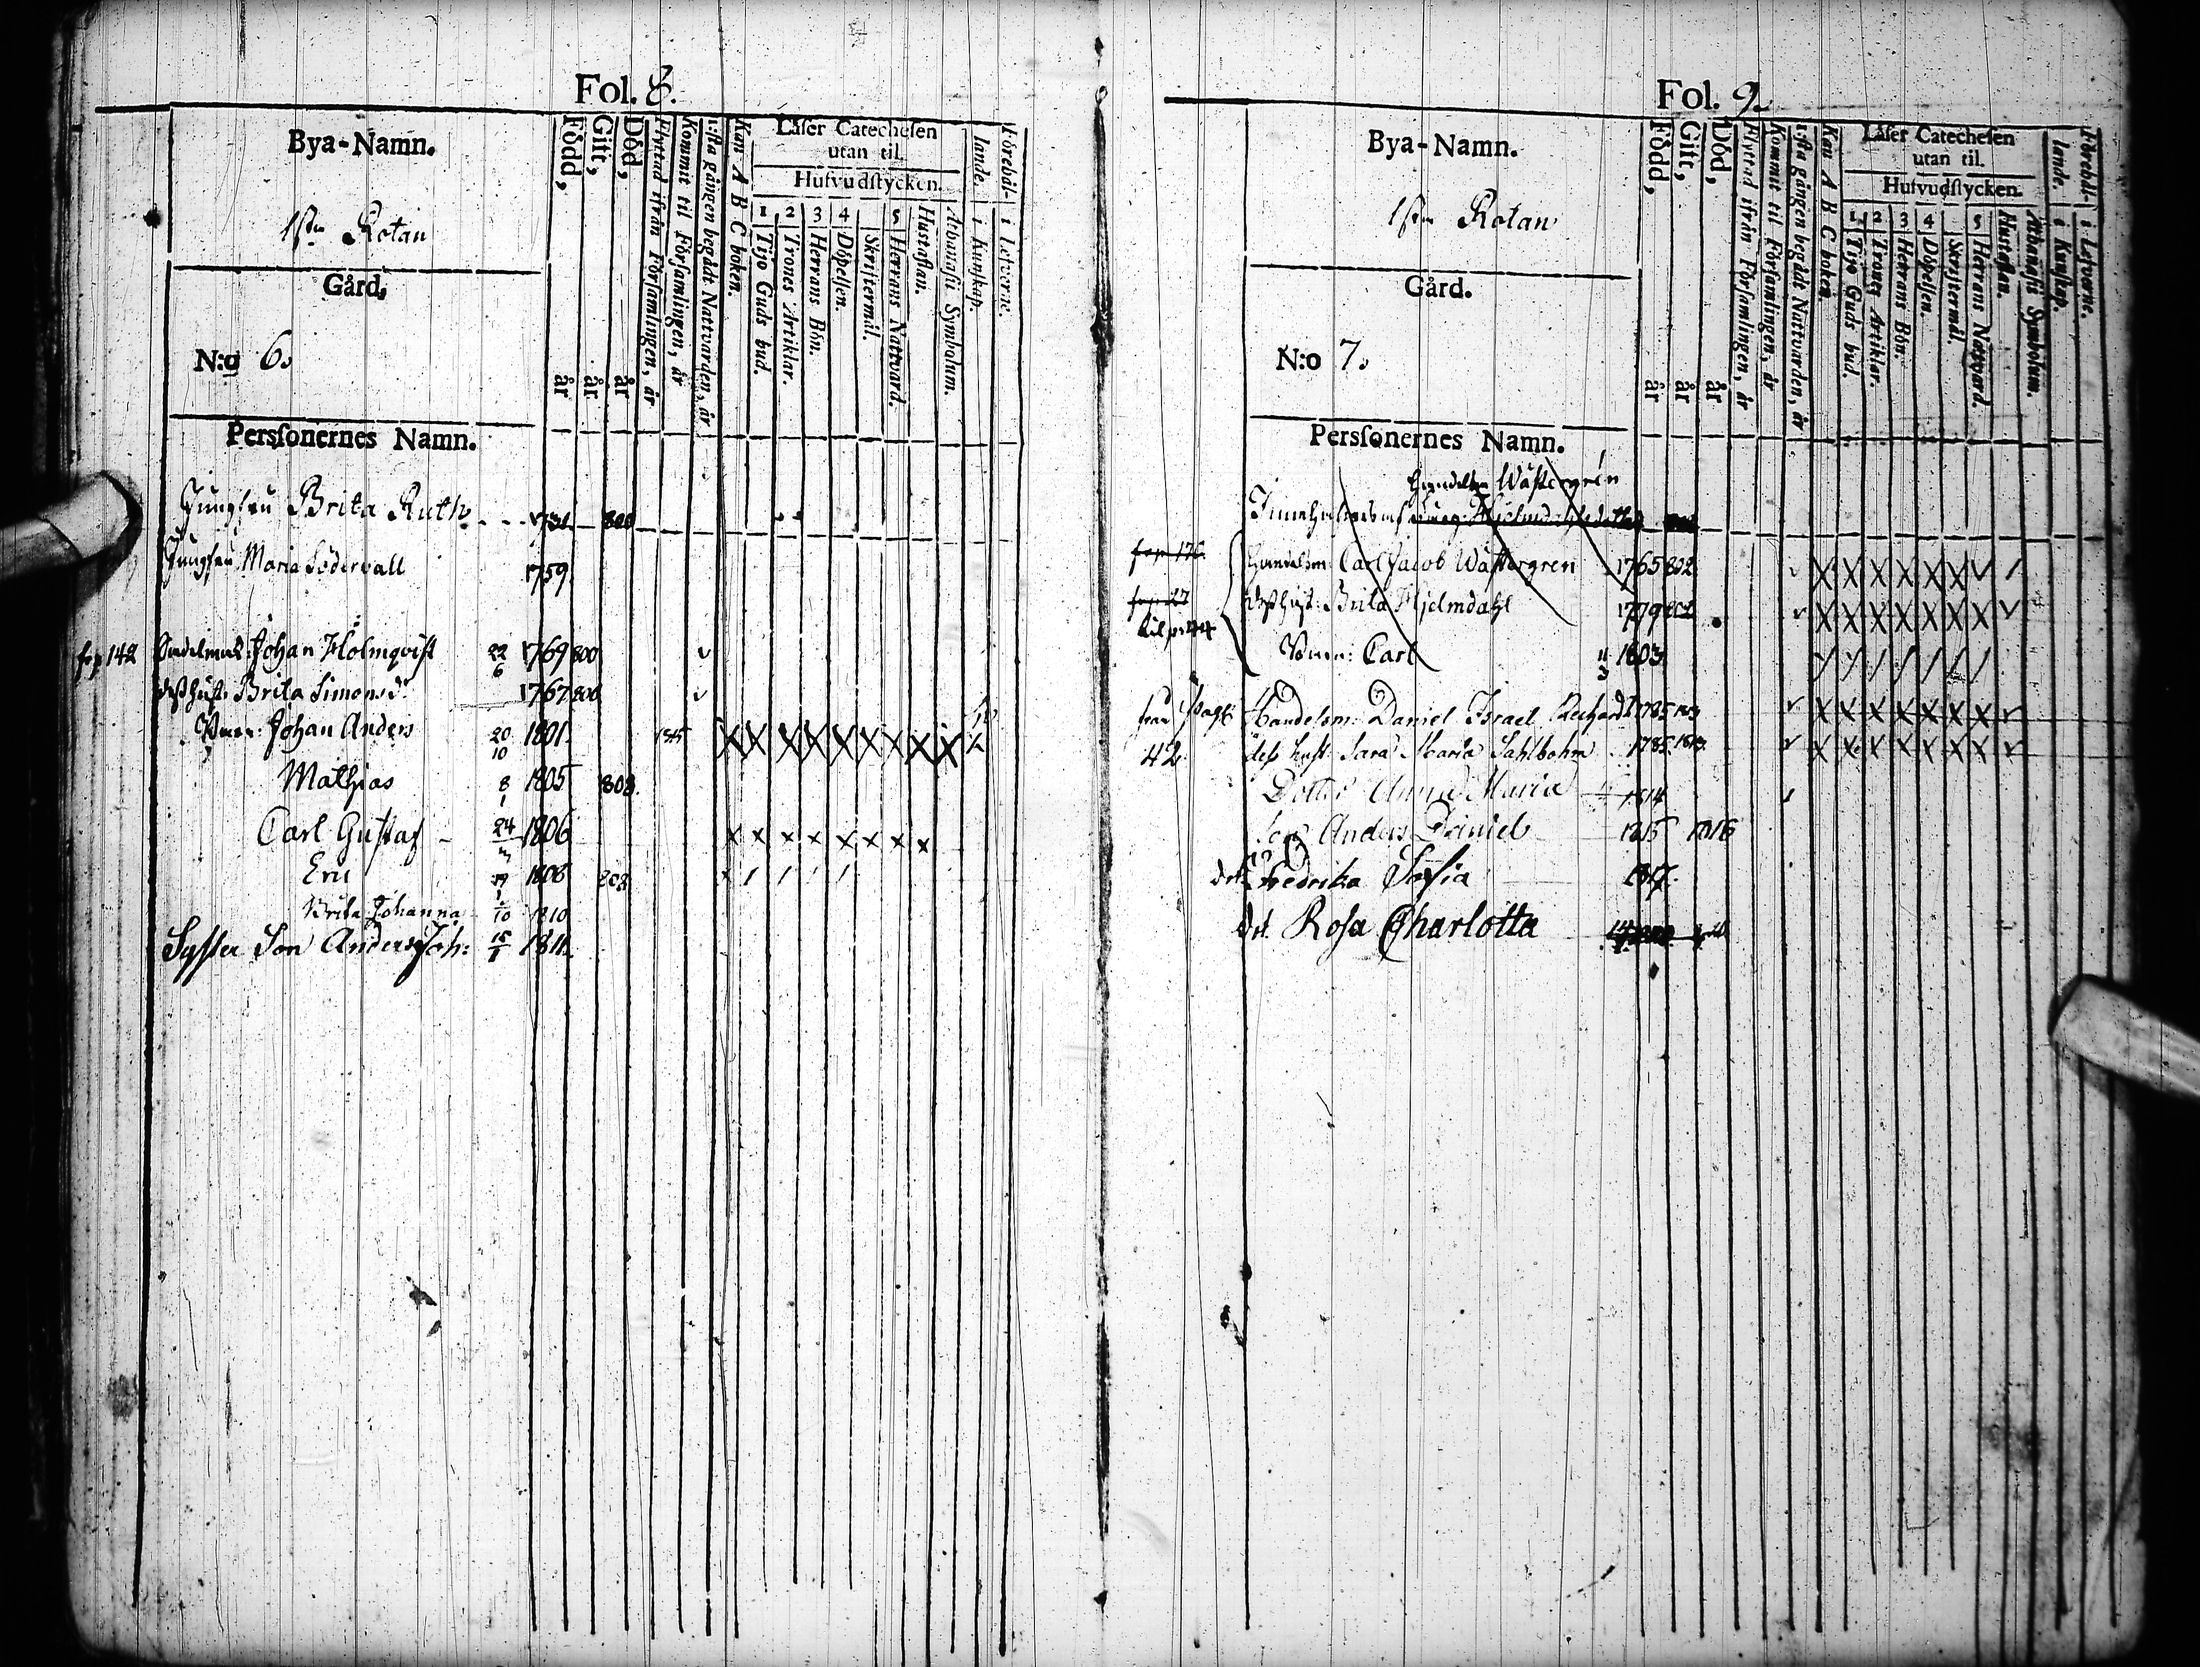 Fol. 8.
Bya-Namn.
1sta Rotan
Gård.
N:o 6.
Född, år
Gift, år
Död, år
Flyttad ifrån Församlingen, år
Kommit til Församlingen, år
1:sta gången begådt Nattvarden, år
Kan A B C boken.
Läser Catechesen
utan til.
Hufvudstycken.
1 Tijo Guds bud.
2 Trones Artiklar.
3 Herrans Bön.
4 Döpelsen.
Skriftermål.
5 Herrans Nattvard.
Hustaflan.
Athanasii Symbolum.
Förehållande.
i Kunskap.
i Lefverne.
Persſonernes Namn.
Jungfru Brita Ruth 1731 800
Jungfru Maria Södervall 1759
fr p 142 Johan Holmqvist 22/6 1769 800
deß hust. Brita Simonsd. 1767 800
Johan Anders 20/10 1801 1815
Mathias 8/1 1805 808
Carl Gustaf 24 1806
Eric 19/1 1808 808
Brita Johanna /10 1810
Syster Son Anders Joh: 15/1 1811
Fol. 9.
Bya-Namn.
1sta Rotan
Gård.
N:o 7.
Född, år
Gift, år
Död, år
Flyttad ifrån Församlingen, år
Kommit til Församlingen, år
1:sta gången begådt Nattvarden, år
Kan A B C boken
Läser Catechesen
utan til.
Hufvudstycken.
1 Tijo Guds bud.
2 Trones Artiklar.
3 Herrans Bön.
4 Döpelsen.
Skriftermål.
5 Herrans Nattvard.
Hustaflan.
Athanasii Symbolum.
Förehållande.
i Kunskap.
i Lefverne.
Persſonernes Namn.
Handelsm Wästergrén
fr p 176 Handelsm: Carl Jacob Wästergren 1765 802
fr p: 27 deß hust: Brita Hjelmdahl 1779 802
Carl 11/3 1803
från Pag: Handelsm: Daniel Israel 1785 1813
42 deß hust. Sara Maria Sahlbohm 1785 1813
Dotter Anna Maria 1814
Son Anders Daniel 1815 1816
dot: Fredrika Sofia 1817
dot. Rosa Charlotta